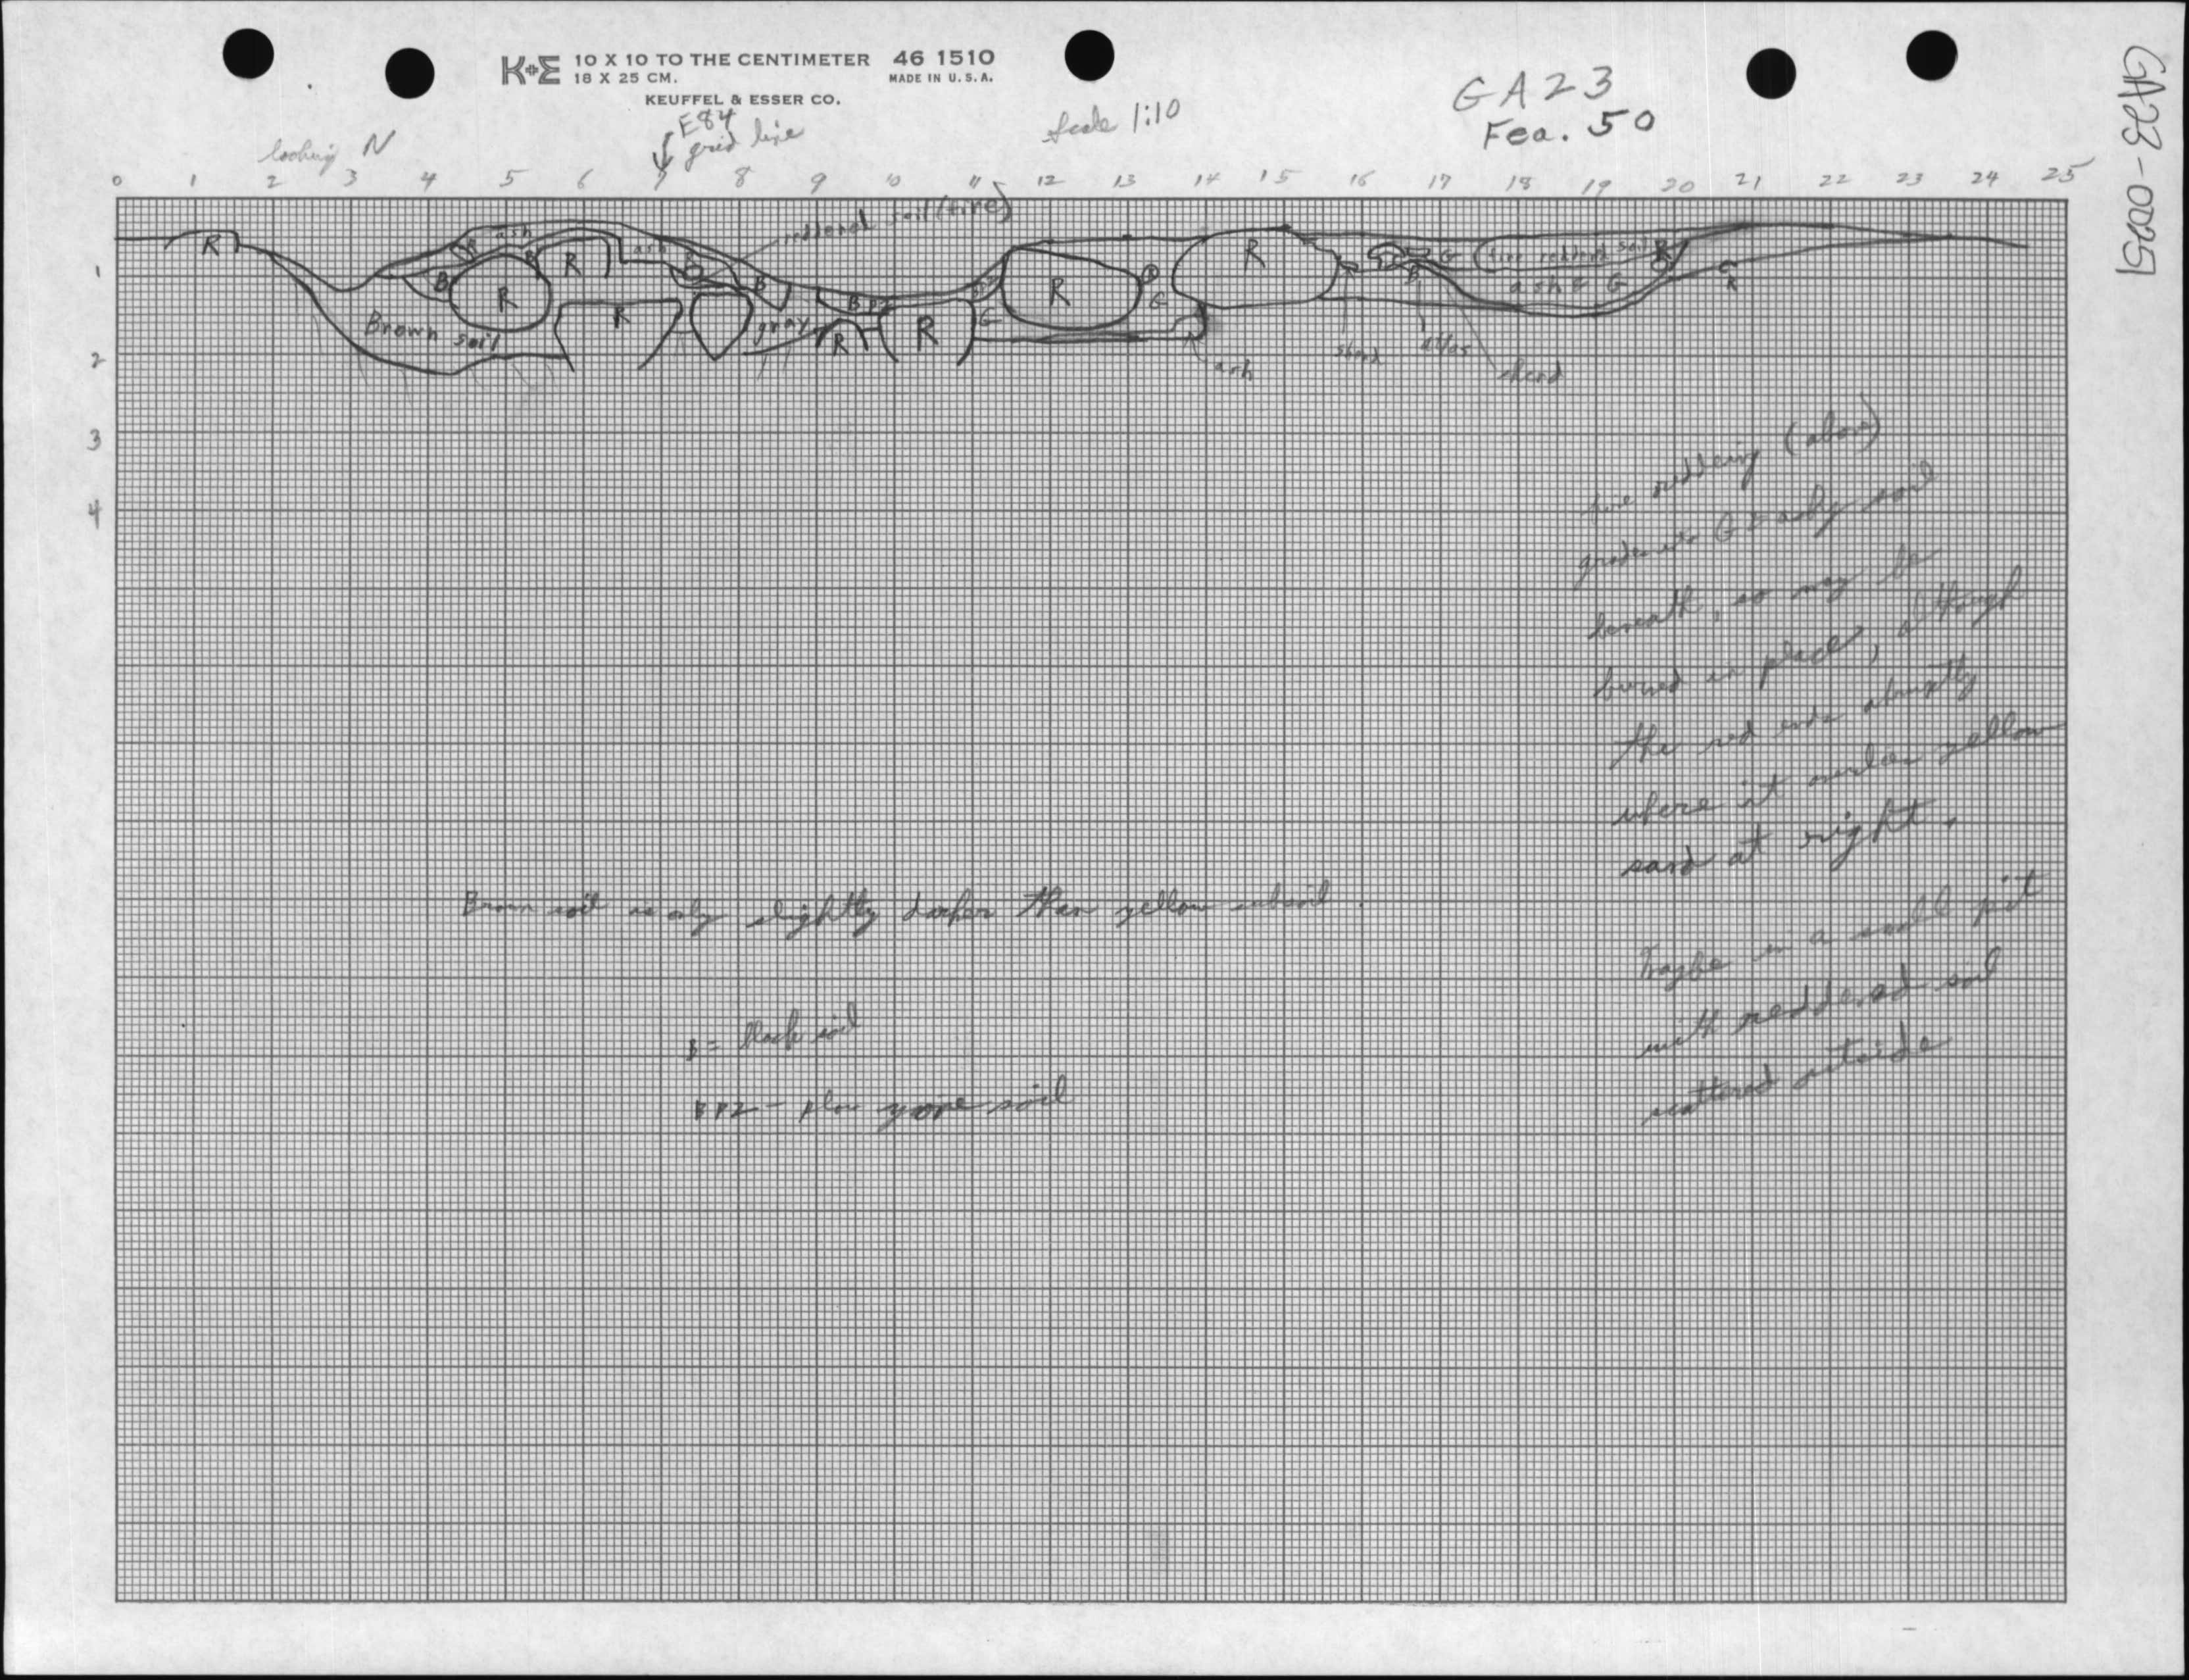 K+E 10 X 10 TO THE CENTIMETER 46 1510
18 X 25 CM. MADE IN U.S.A.
KEUFFEL & ESSER CO.
GA23
Fea. 50
GA23-0025
Scale 1:10
E84
grid line
looking N
0 1 2 3 4 5 6 7 8 9 10 11 12 13 14 15 16 17 18 19 20 21 22 23 24 25
1
2
3
4
reddened soil (fire)
R
R
ash
B
R
B
R
ash
B
B
Brown soil
R
gray
R
B PZ
R
G
R
R
G
R
G
fire reddened soil
R
B
ash & G
ash
sherd
sherd
fire reddening (above)
grades into G & ashy soil
beneath, so may be
burned in place, although
the red ends abruptly
where it overlies yellow
sand at right.
Maybe in a small pit
with reddened soil
scattered outside
Brown soil is only slightly darker than yellow subsoil.
B = Black soil
B PZ - plow zone soil